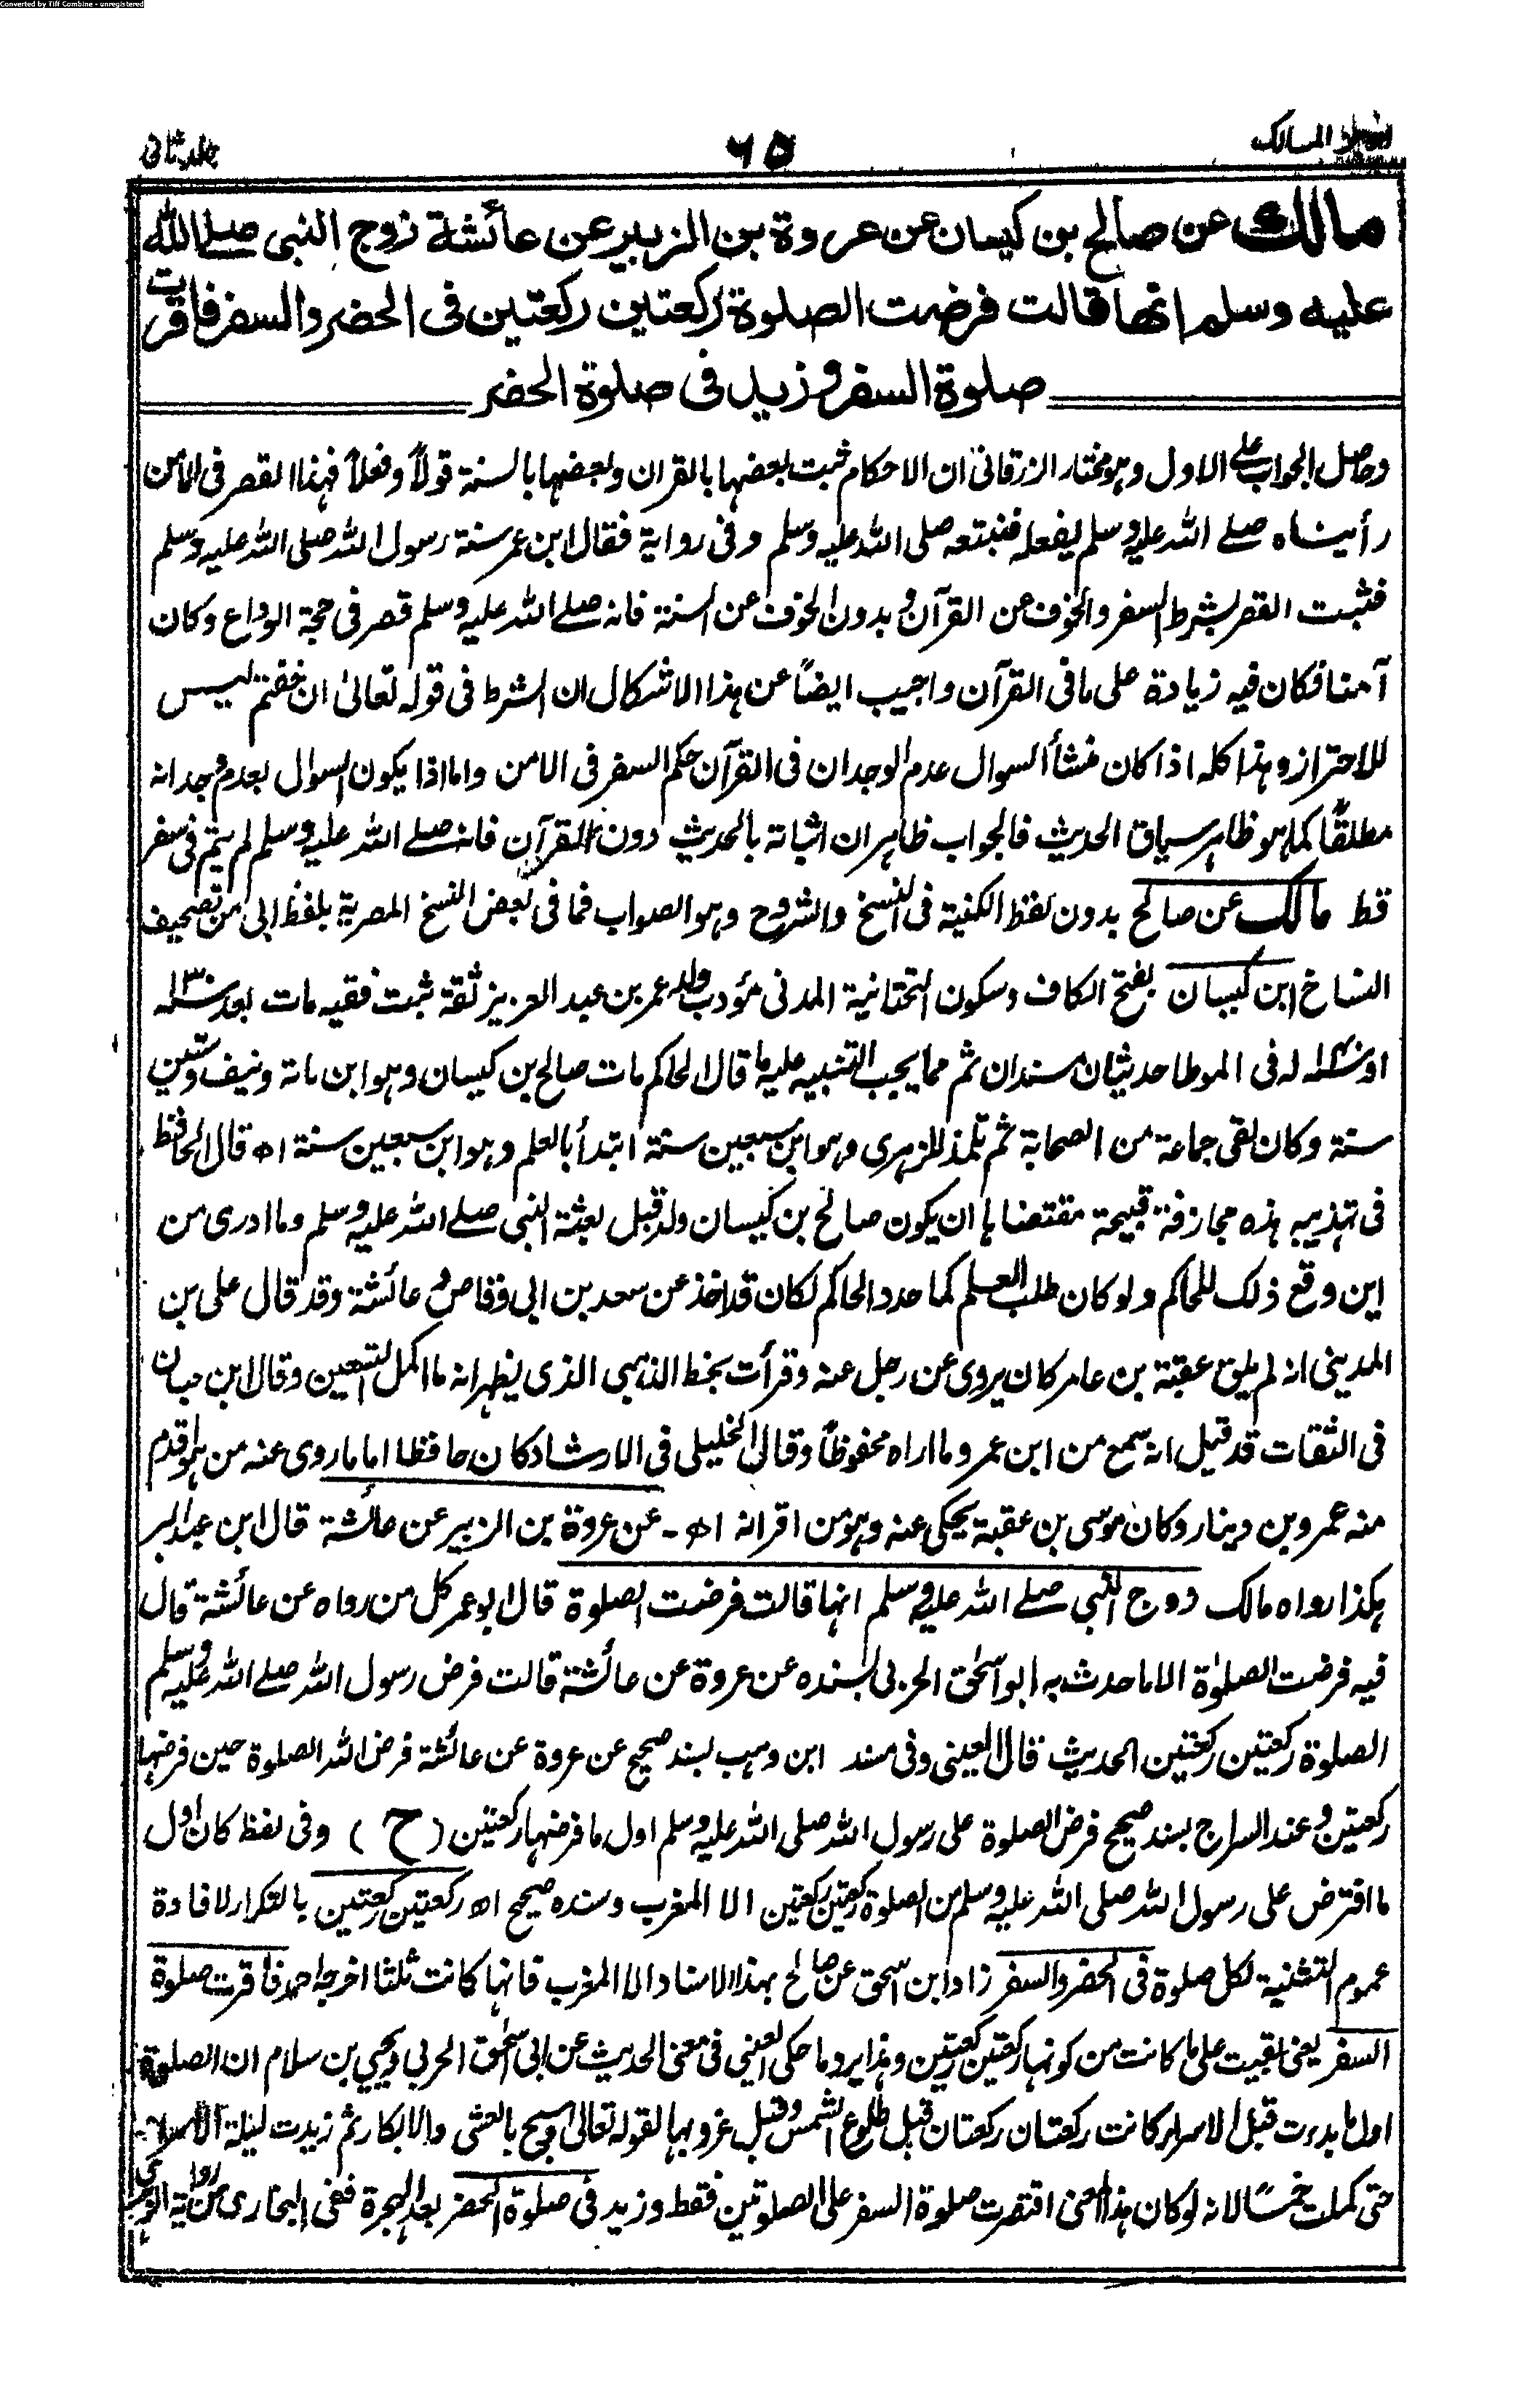 Converted by Tiff Combine - unregistered
المسالك
٦٥
جلد ثانى
مالك عن صالح بن كيسان عن عروة بن الزبير عن عائشة زوج النبى صلے الله
عليه وسلم انها قالت فرضت الصلوة ركعتين ركعتين فى الحضر والسفر فاقرت
صلوة السفر و زيد فى صلوة الحضر
وحاصل الجواب على الاول وهو مختار الزرقانى ان الاحكام ثبت بعضها بالقران وبعضها بالسنة قولاً وفعلاً فهذا القصر فى الامن
رأيناه صلے الله عليه وسلم يفعله فنتبعه صلى الله عليه وسلم وفى رواية فقال ابن عمر سنة رسول الله صلى الله عليه وسلم
فثبت القصر بشرط السفر والخوف عن القرآن و بدون الخوف عن السنة فانه صلے الله عليه وسلم قصر فى حجة الوداع وكان
آمنا فكان فيه زيادة على ما فى القرآن واجيب ايضاً عن هذا الاشكال ان الشرط فى قوله تعالىٰ ان خفتم ليس
للاحتراز وهذا كله اذا كان منشأ السوال عدم الوجدان فى القرآن حكم السفر فى الامن واما اذا يكون السوال بعدم وجدانه
مطلقاً كما هو ظاهر سياق الحديث فالجواب ظاهر ان اثباته بالحديث دون القرآن فانه صلے الله عليه وسلم لم يتم فى سفر
قط مالك عن صالح بدون لفظ الكنية فى النسخ والشروح وهو الصواب فما فى بعض النسخ المصرية بلفظ ابى من تصحيف
النساخ ابن كيسان بفتح الكاف وسكون التحتانية المدنى مؤدب ولد عمر بن عبد العزيز ثقة ثبت فقيه مات بعد سنة ١٣٠
او سنة ١٤٠ له فى الموطا حديثان مسندان ثم مما يجب التنبيه عليه ما قال الحاكم مات صالح بن كيسان وهو ابن مائة ونيف وستين
سنة وكان لقى جماعة من الصحابة ثم تلمذ للزهرى وهو ابن سبعين سنة ابتدأ بالعلم وهو ابن سبعين سنة اھ قال الحافظ
فى تهذيبه هذه مجازفة قبيحة مقتضاها ان يكون صالح بن كيسان ولد قبل بعثة النبى صلے الله عليه وسلم وما ادرى من
اين وقع ذلك للحاكم ولو كان طلب العلم كما حدد الحاكم لكان قد اخذ عن سعد بن ابى وقاص و عائشة وقد قال على بن
المدينى انه لم يلق عقبة بن عامر كان يروى عن رجل عنه وقرأت بخط الذهبى الذى يظهر انه ما اكمل التسعين وقال ابن حبان
فى الثقات قد قيل انه سمع من ابن عمر وما اراه محفوظاً وقال الخليلى فى الارشاد كان حافظا اماما روى عنه من هو اقدم
منه عمرو بن دينار وكان موسى بن عقبة يحكى عنه وهو من اقرانه اھ - عن عروة بن الزبير عن عائشة قال ابن عبد البر
هكذا رواه مالك زوج النبى صلے الله عليه وسلم انها قالت فرضت الصلوة قال ابو عمر كل من رواه عن عائشة قال
فيه فرضت الصلوٰة الا ما حدث به ابو اسحٰق الحربى بسنده عن عروة عن عائشة قالت فرض رسول الله صلے الله عليه وسلم
الصلوة ركعتين ركعتين الحديث قال العينى وفى مسند ابن وهب بسند صحيح عن عروة عن عائشة فرض الله الصلوة حين فرضها
ركعتين وعند السراج بسند صحيح فرض الصلوة على رسول الله صلى الله عليه وسلم اول ما فرضها ركعتين (ح) وفى لفظ كان اول
ما افترض على رسول الله صلى الله عليه وسلم من الصلوة ركعتين ركعتين الا المغرب وسنده صحيح اھ ركعتين ركعتين بالتكرار لافادة
عموم التثنية لكل صلوة فى الحضر والسفر زاد ابن اسحق عن صالح بهذا الاسناد الا المغرب فانها كانت ثلثا اخرجه احمد فاقرت صلوة
السفر يعنى بقيت على ما كانت من كونها ركعتين ركعتين وهذا يرد ما حكى العينى فى معنى الحديث عن ابى اسحٰق الحربى ويحيى بن سلام ان الصلوة
اول ما بدءت قبل الاسراء كانت ركعتان ركعتان قبل طلوع الشمس وقبل غروبها لقوله تعالى وسبح بالعشى والابكار ثم زيدت ليلة الاسراء
حتى كملت خمسًا لانه لو كان هذا المعنى اقتصرت صلوة السفر على الصلوتين فقط وزيد فى صلوة الحضر بعد الهجرة ففى البخارى من رواية